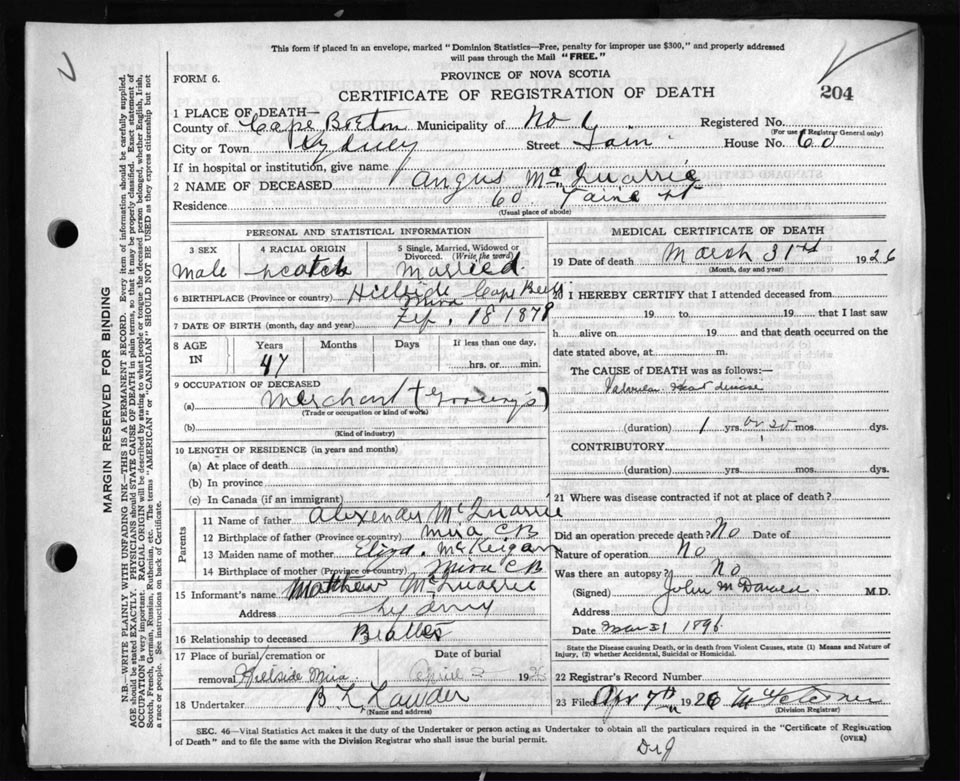 This form if placed in an envelope, marked "Dominion Statistics—Free, penalty for improper use $300," and properly addressed
will pass through the Mail "FREE."
PROVINCE OF NOVA SCOTIA
FORM 6.
CERTIFICATE OF REGISTRATION OF DEATH
204
1 PLACE OF DEATH—
County of Cape Breton Municipality of No Registered No.
(For use of Registrar General only)
City or Town Sydney Street House No. 60
If in hospital or institution, give name
2 NAME OF DECEASED Angus McQuarrie
Residence 60 St
(Usual place of abode)
PERSONAL AND STATISTICAL INFORMATION
3 SEX
Male
4 RACIAL ORIGIN
Scotch
5 Single, Married, Widowed or Divorced. (Write the word)
Married.
6 BIRTHPLACE (Province or country) Hillside Cape
Mira
7 DATE OF BIRTH (month, day and year) 18 1878
8 AGE IN
Years Months Days If less than one day,
47 hrs. or min.
9 OCCUPATION OF DECEASED
(a) Merchant (Grocery's)
(Trade or occupation or kind of work)
(b)
(Kind of industry)
10 LENGTH OF RESIDENCE (in years and months)
(a) At place of death
(b) In province
(c) In Canada (if an immigrant)
Parents
11 Name of father Alexender McQuarrie
12 Birthplace of father (Province or country) Mira CB
13 Maiden name of mother Eliza. McKeigan
14 Birthplace of mother (Province or country) Mira CB
15 Informant's name Matthew McQuarrie
Address Sydney
16 Relationship to deceased
17 Place of burial/cremation or Date of burial
removal Hillside Mira April 2 1926
18 Undertaker
(Name and address)
MEDICAL CERTIFICATE OF DEATH
19 Date of death March 31 1926
(Month, day and year)
20 I HEREBY CERTIFY that I attended deceased from
19 to 19 that I last saw
h alive on 19 and that death occurred on the
date stated above, at m.
The CAUSE of DEATH was as follows:—
Valvular Heart disease
(duration) 1 yrs. or 20 mos. dys.
CONTRIBUTORY
(duration) yrs. mos. dys.
21 Where was disease contracted if not at place of death?
Did an operation precede death? No Date of
Nature of operation No
Was there an autopsy? No
(Signed) John McDonald. M.D.
Address
Date Mar 31 1896
State the Disease causing Death, or in death from Violent Causes, state (1) Means and Nature of
Injury, (2) whether Accidental, Suicidal or Homicidal.
22 Registrar's Record Number
23 Filed Apr 7th 1926
(Division Registrar)
SEC. 46—Vital Statistics Act makes it the duty of the Undertaker or person acting as Undertaker to obtain all the particulars required in the "Certificate of Registration
of Death" and to file the same with the Division Registrar who shall issue the burial permit. (OVER)
MARGIN RESERVED FOR BINDING
N.B.—WRITE PLAINLY WITH UNFADING INK—THIS IS A PERMANENT RECORD. Every item of information should be carefully supplied.
AGE should be stated EXACTLY. PHYSICIANS should STATE CAUSE OF DEATH in plain terms, so that it may be properly classified. Exact statement of
OCCUPATION is very important. RACIAL ORIGIN will be described by stating to what people or tongue the deceased person belonged, whether English, Irish,
Scotch, French, German, Russian, Ruthenian, etc. The terms "AMERICAN" or "CANADIAN" SHOULD NOT BE USED as they express citizenship but not
a race or people. See instructions on back of Certificate.